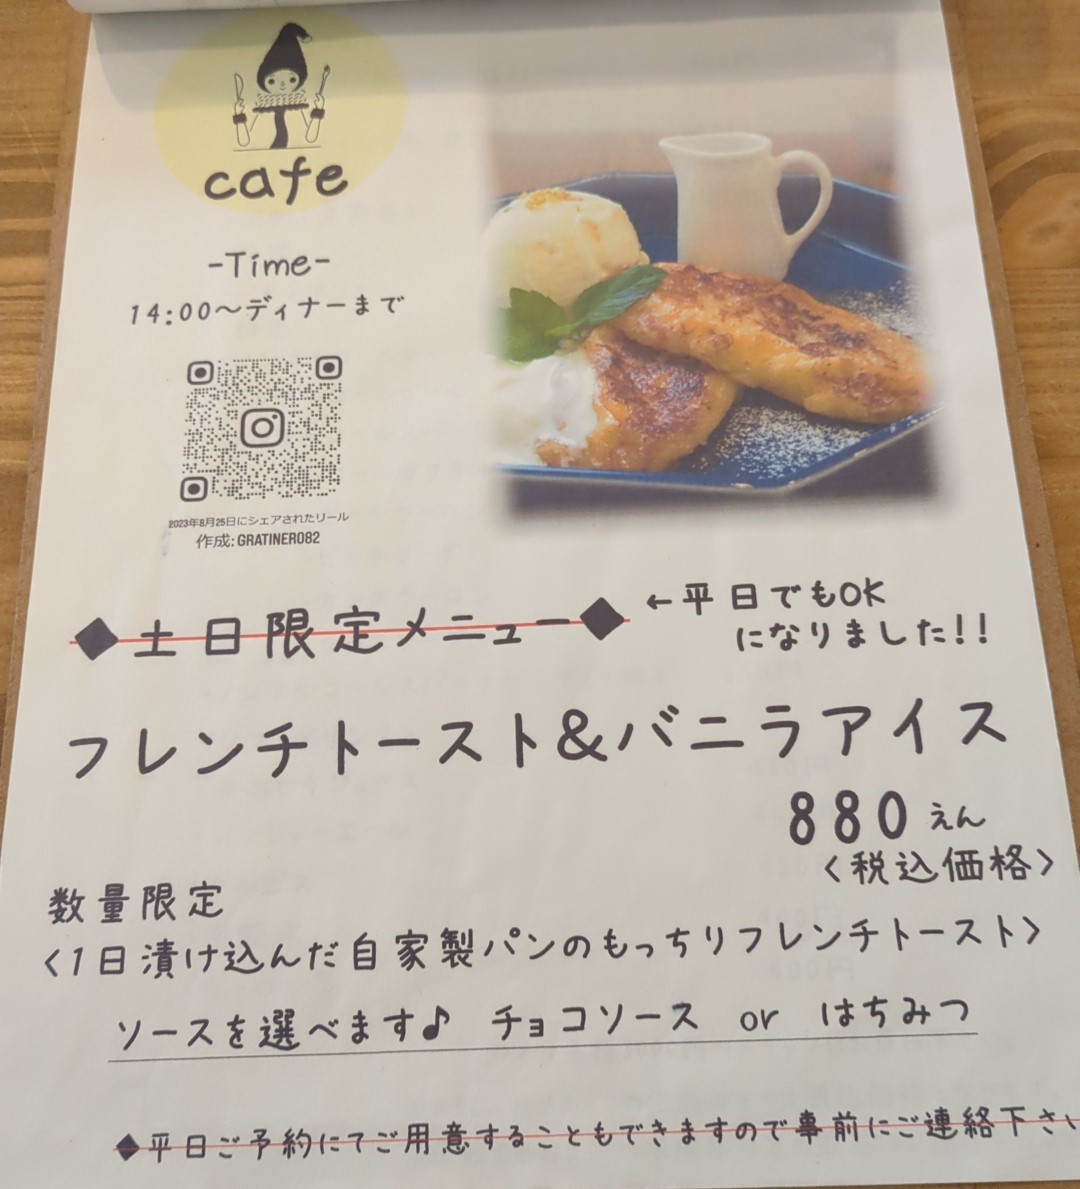 cafe
-Time-
14:00～ディナーまで
2023年8月25日にシェアされたリール
作成: GRATINER082
◆土日限定メニュー◆
←平日でもOK
になりました!!
フレンチトースト&バニラアイス
880えん
<税込価格>
数量限定
<1日漬け込んだ自家製パンのもっちりフレンチトースト>
ソースを選べます♪ チョコソース or はちみつ
◆平日ご予約にてご用意することもできますので事前にご連絡下さい